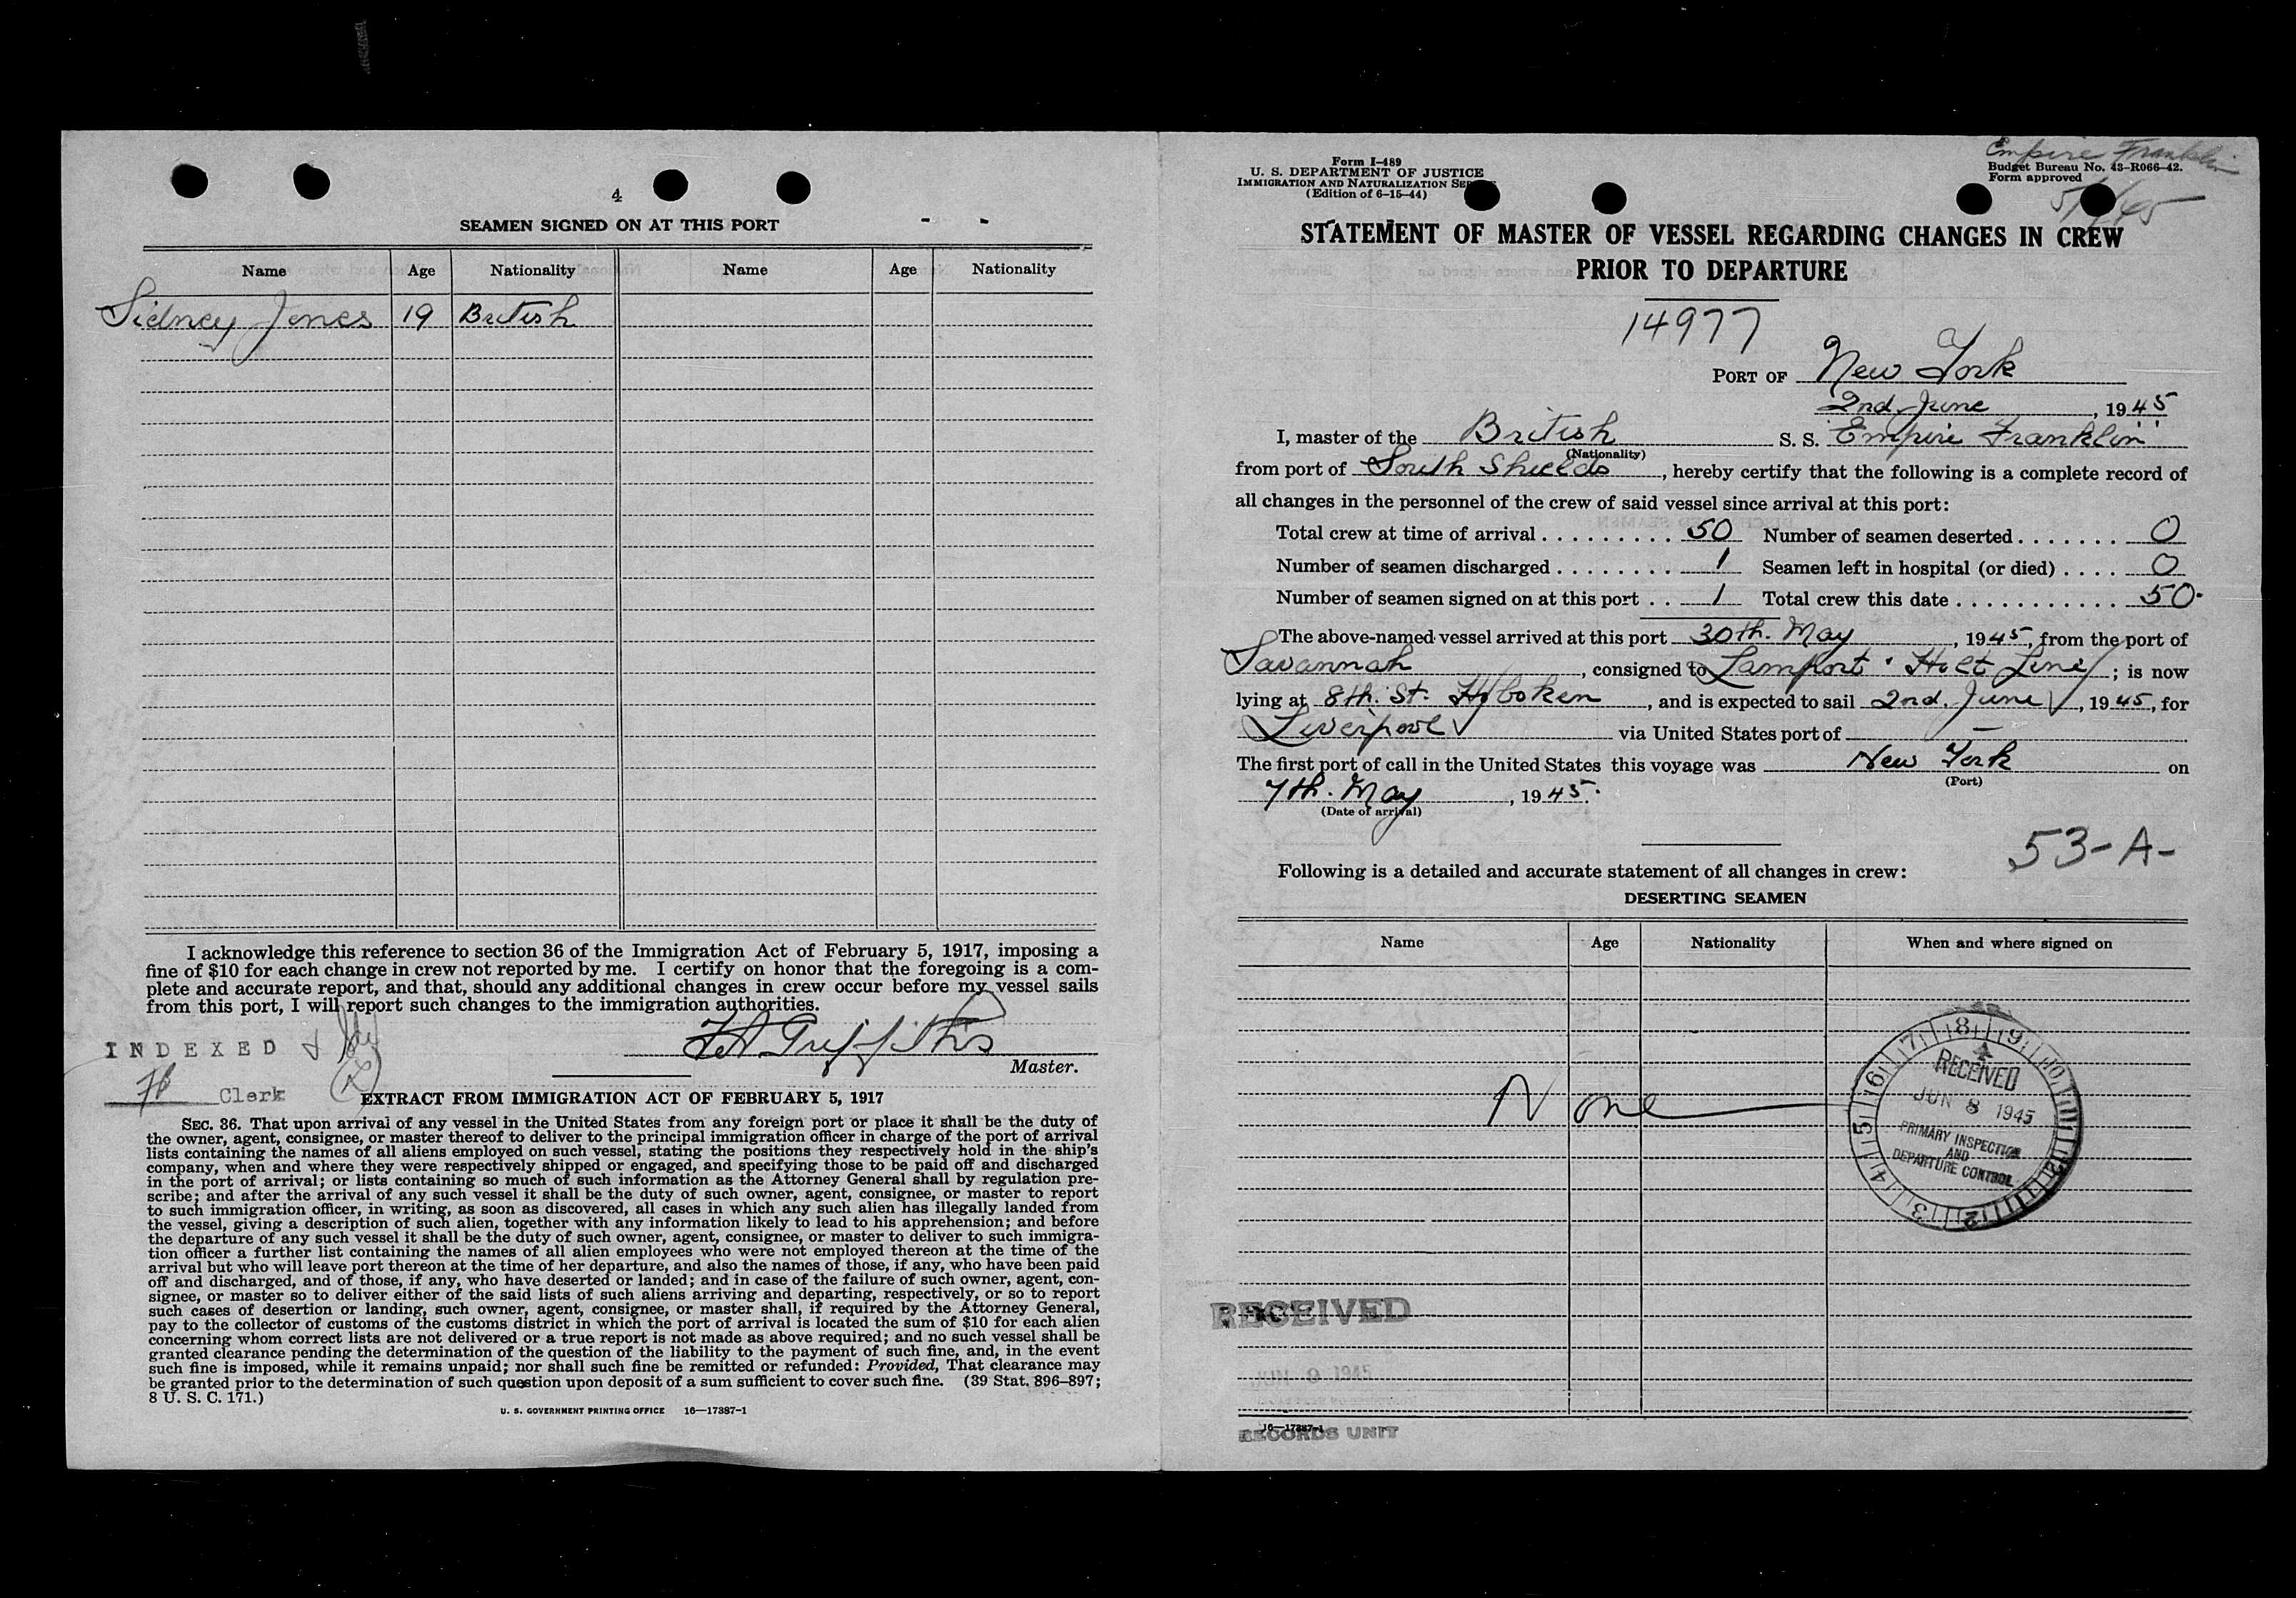 4
SEAMEN SIGNED ON AT THIS PORT
Name Age Nationality Name Age Nationality
Sidney Jones 19 British
I acknowledge this reference to section 36 of the Immigration Act of February 5, 1917, imposing a
fine of $10 for each change in crew not reported by me. I certify on honor that the foregoing is a com-
plete and accurate report, and that, should any additional changes in crew occur before my vessel sails
from this port, I will report such changes to the immigration authorities.
Griffiths
Master.
INDEXED
Clerk
EXTRACT FROM IMMIGRATION ACT OF FEBRUARY 5, 1917
SEC. 36. That upon arrival of any vessel in the United States from any foreign port or place it shall be the duty of
the owner, agent, consignee, or master thereof to deliver to the principal immigration officer in charge of the port of arrival
lists containing the names of all aliens employed on such vessel, stating the positions they respectively hold in the ship's
company, when and where they were respectively shipped or engaged, and specifying those to be paid off and discharged
in the port of arrival; or lists containing so much of such information as the Attorney General shall by regulation pre-
scribe; and after the arrival of any such vessel it shall be the duty of such owner, agent, consignee, or master to report
to such immigration officer, in writing, as soon as discovered, all cases in which any such alien has illegally landed from
the vessel, giving a description of such alien, together with any information likely to lead to his apprehension; and before
the departure of any such vessel it shall be the duty of such owner, agent, consignee, or master to deliver to such immigra-
tion officer a further list containing the names of all alien employees who were not employed thereon at the time of the
arrival but who will leave port thereon at the time of her departure, and also the names of those, if any, who have been paid
off and discharged, and of those, if any, who have deserted or landed; and in case of the failure of such owner, agent, con-
signee, or master so to deliver either of the said lists of such aliens arriving and departing, respectively, or so to report
such cases of desertion or landing, such owner, agent, consignee, or master shall, if required by the Attorney General,
pay to the collector of customs of the customs district in which the port of arrival is located the sum of $10 for each alien
concerning whom correct lists are not delivered or a true report is not made as above required; and no such vessel shall be
granted clearance pending the determination of the question of the liability to the payment of such fine, and, in the event
such fine is imposed, while it remains unpaid; nor shall such fine be remitted or refunded: Provided, That clearance may
be granted prior to the determination of such question upon deposit of a sum sufficient to cover such fine. (39 Stat. 896–897;
8 U. S. C. 171.)
U. S. GOVERNMENT PRINTING OFFICE 16—17387-1
Form I-489
U. S. DEPARTMENT OF JUSTICE
IMMIGRATION AND NATURALIZATION
(Edition of 6-15-44)
Empire Franklin
Budget Bureau No. 43-R066-42.
Form approved
STATEMENT OF MASTER OF VESSEL REGARDING CHANGES IN CREW
PRIOR TO DEPARTURE
14977
PORT OF New York
2nd June, 1945
I, master of the British S. S. "Empire Franklin"
(Nationality)
from port of South Shields, hereby certify that the following is a complete record of
all changes in the personnel of the crew of said vessel since arrival at this port:
Total crew at time of arrival . . . . . . . . . 50 Number of seamen deserted . . . . . . . 0
Number of seamen discharged . . . . . . . . 1 Seamen left in hospital (or died) . . . . 0
Number of seamen signed on at this port . . 1 Total crew this date . . . . . . . . . . . 50
The above-named vessel arrived at this port 30th. May, 1945, from the port of
Savannah, consigned to Lamport & Holt Line; is now
lying at 8th. St. Hoboken, and is expected to sail 2nd. June, 1945, for
Liverpool via United States port of —
The first port of call in the United States this voyage was New York on
(Port)
7th. May, 1945.
(Date of arrival)
53-A-
Following is a detailed and accurate statement of all changes in crew:
DESERTING SEAMEN
Name Age Nationality When and where signed on
None
7 8 9 10 11 12 1 2 3 4 5 6
RECEIVED
JUN 8 1945
PRIMARY INSPECTION
AND
DEPARTURE CONTROL
RECEIVED
JUN 9 1945
16—17387-1
RECORDS UNIT